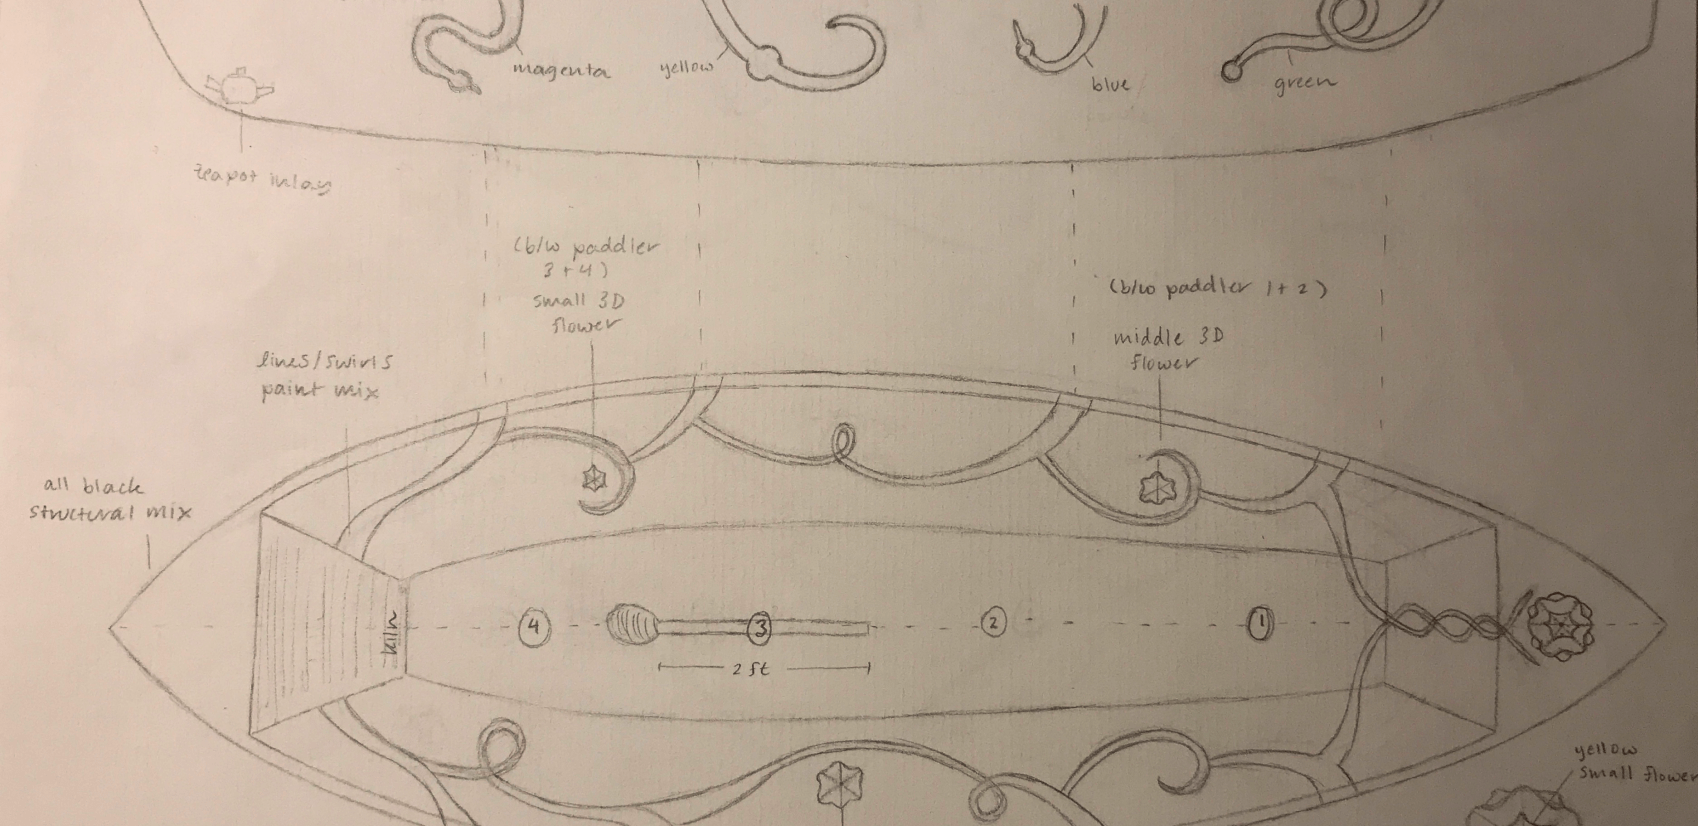 magenta
yellow
blue
green
teapot inlay
(b/w paddler
3 + 4)
small 3D
flower
(b/w paddler 1 + 2)
middle 3D
flower
lines/swirls
paint mix
all black
structural mix
kiln
4
3
2
1
2 ft
yellow
small flower